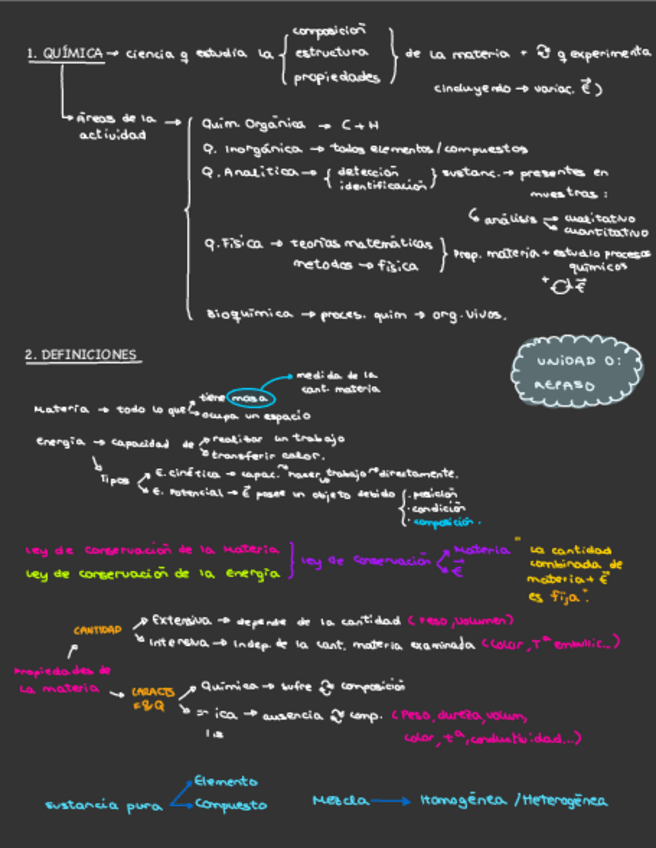 composición
1. QUÍMICA → ciencia q estudia la { estructura } de la materia + q experimenta
propiedades
(incluyendo → variac. E)
áreas de la actividad →
Quím. Orgánica → C + H
Q. Inorgánica → todos elementos/compuestos
Q. Analítica → { detección identificación } sustanc. → presentes en
muestras:
análisis → cualitativo
→ cuantitativo
Q. Física → teorías matemáticas
metodos → física
Prop. materia + estudio procesos
químicos
+ E
Bioquímica → proces. quim → org. vivos.
2. DEFINICIONES
UNIDAD 0:
REPASO
medida de la
cant. materia
tiene masa
Materia → todo lo que
ocupa un espacio
Energía → capacidad de realizar un trabajo
transferir calor.
Tipos
E. cinética → capac. hacer trabajo directamente.
E. Potencial → E posee un objeto debido
· posición
· condición
· composición.
Ley de conservación de la Materia
Ley de conservación de la Energía
Ley de conservación
Materia
E
"La cantidad
combinada de
materia + E
es fija".
CANTIDAD
Extensiva → depende de la cantidad (Peso, volumen)
Intensiva → indep. de la cant. materia examinada (color, Tª ebullic...)
Propiedades de
la materia
CARACTS
F&Q
Química → sufre composición
ica → ausencia comp. (Peso, dureza, volum,
color, tª, conductividad...)
Elemento
sustancia pura
Compuesto
Mezcla → Homogénea / Heterogénea